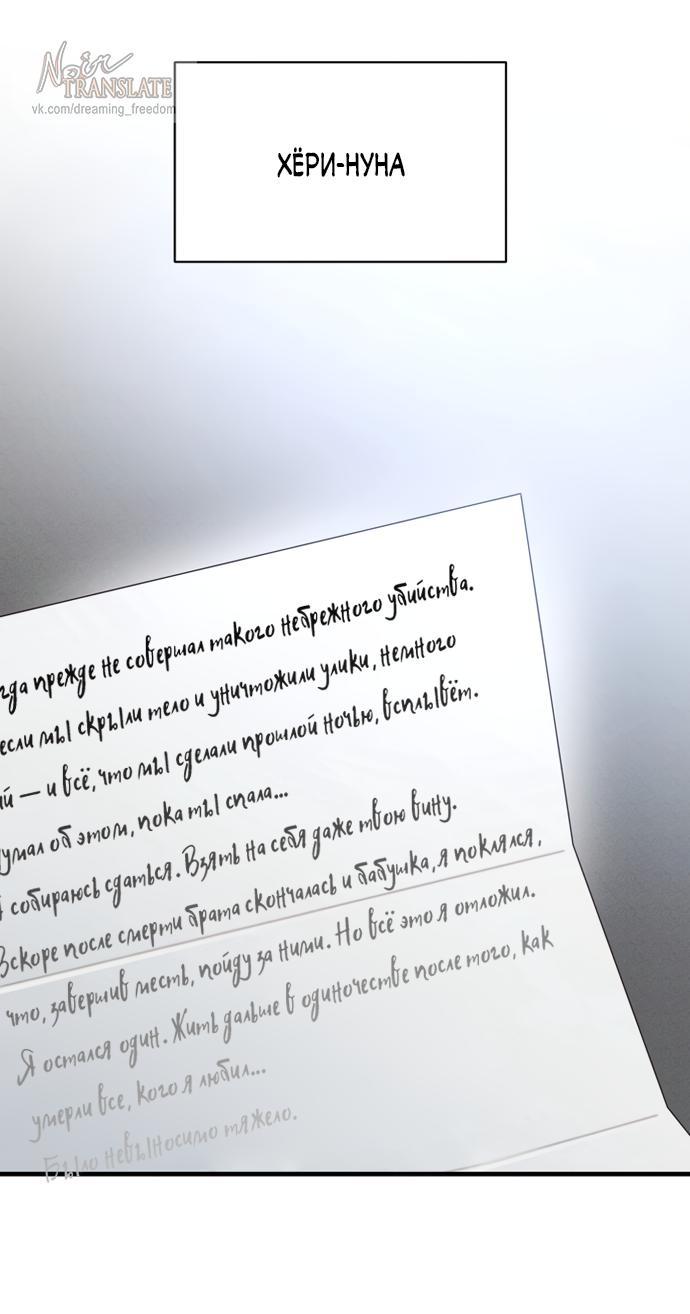 Noir
TRANSLATE
vk.com/dreaming_freedom
ХЁРИ-НУНА
прежде не совершал такого небрежного убийства.
если мы скрыли тело и уничтожили улики, немного
— и всё, что мы сделали прошлой ночью, всплывёт.
об этом, пока ты спала...
собираюсь сдаться. Взять на себя даже твою вину.
Вскоре после смерти брата скончалась и бабушка, я поклялся,
что, завершив месть, пойду за ними. Но всё это я отложил.
Я остался один. Жить дальше в одиночестве после того, как
умерли все, кого я любил...
Было невыносимо тяжело.